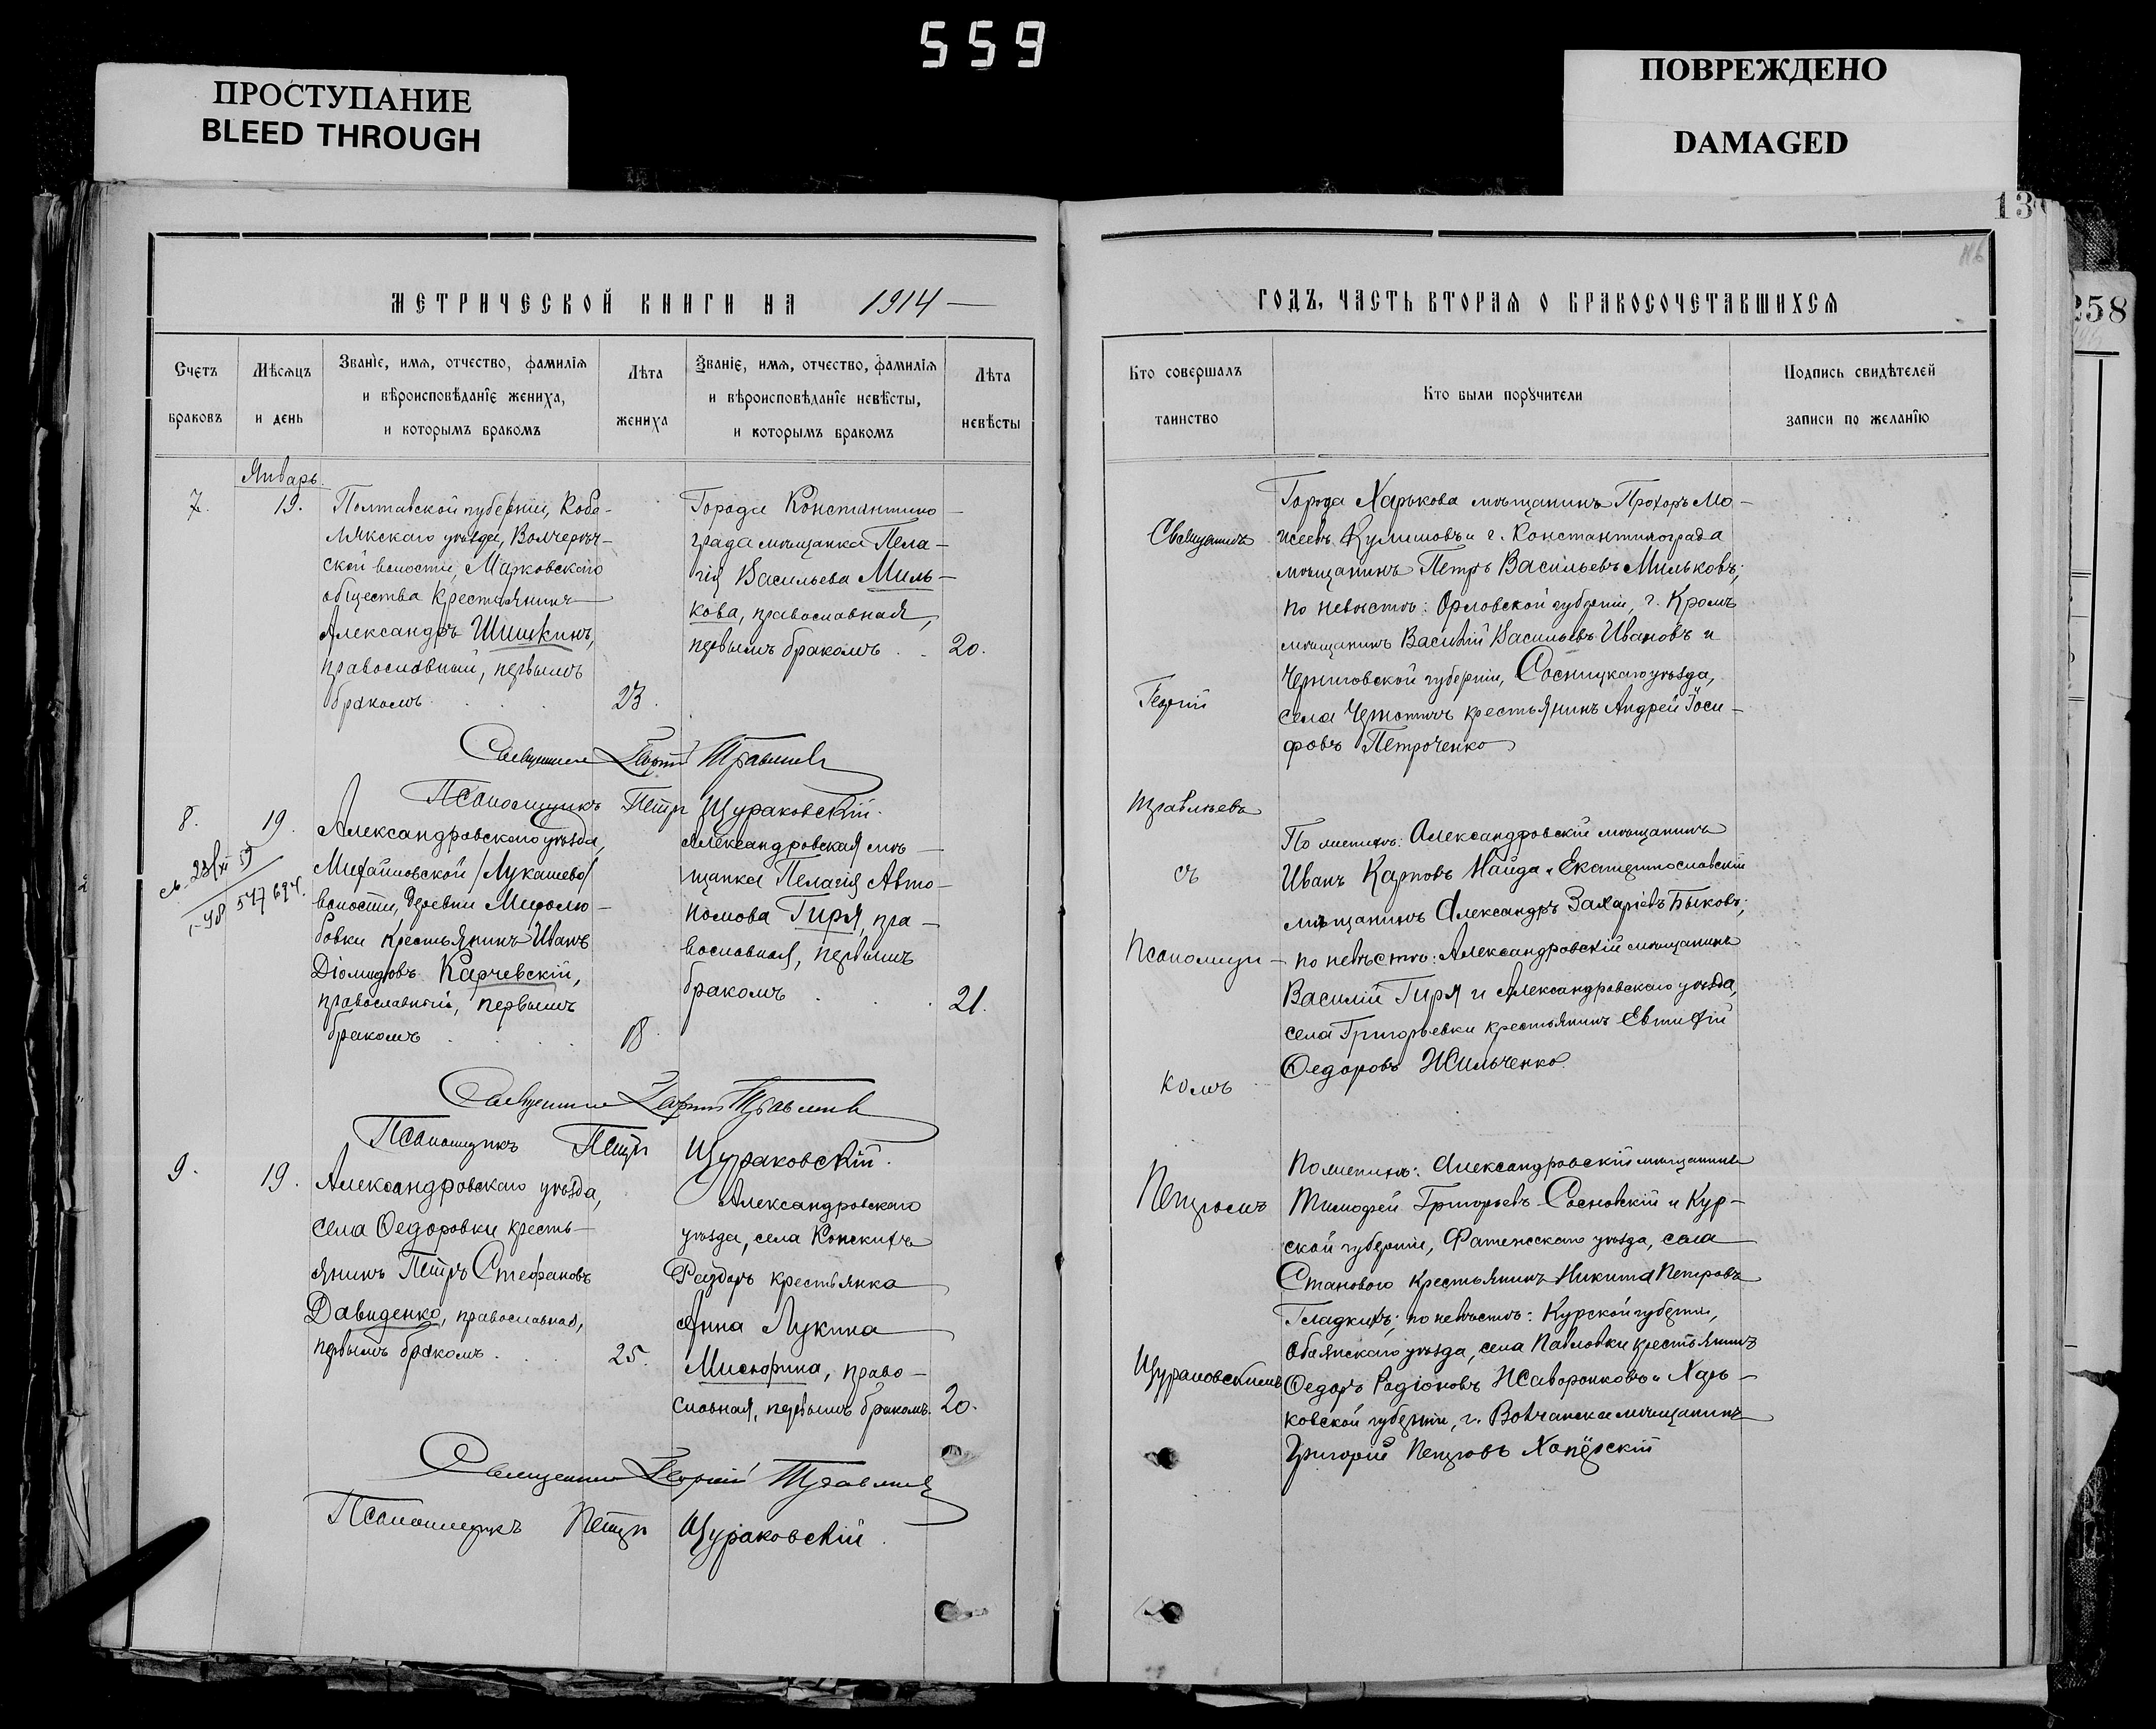 559
ПРОСТУПАНИЕ
BLEED THROUGH
ПОВРЕЖДЕНО
DAMAGED
13
258
МЕТРИЧЕСКОЙ КНИГИ НА 1914 —
Счетъ браковъ
Мѣсяцъ и день
Званіе, имя, отчество, фамилія
и вѣроисповѣданіе жениха,
и которымъ бракомъ
Лѣта жениха
Званіе, имя, отчество, фамилія
и вѣроисповѣданіе невѣсты,
и которымъ бракомъ
Лѣта невѣсты
Январь.
7.
19.
Полтавской губерніи, Кобе-
лякскаго уѣзда,
ской волости, Марковскаго
общества крестьянинъ
Александръ Шишкинъ,
православный, первымъ
бракомъ
23.
Города Константино-
града мѣщанка Пела-
гія Васильева Миль-
кова, православная,
первымъ бракомъ
20.
Священникъ Георгій
Псаломщикъ Петръ Щураковскій.
8.
19.
Александровскаго уѣзда,
Михайловской /Лукашево/
волости, деревни Миролю-
бовки крестьянинъ Иванъ
Діомидовъ Карчевскій,
православный, первымъ
бракомъ
18.
Александровская мѣ-
щанка Пелагія Авто-
номова Гиря, пра-
вославная, первымъ
бракомъ
21.
Священникъ Георгій
Псаломщикъ Петръ Щураковскій.
9.
19.
Александровскаго уѣзда,
села Ѳедоровки кресть-
янинъ Петръ Стефановъ
Давиденко, православный,
первымъ бракомъ
25.
Александровскаго
уѣзда, села Конскихъ
Раздоръ крестьянка
Анна Лукина
Мисюрина, право-
славная, первымъ бракомъ.
20.
Священникъ Георгій
Псаломщикъ Петръ Щураковскій.
ГОДЪ, ЧАСТЬ ВТОРАЯ О БРАКОСОЧЕТАВШИХСЯ
Кто совершалъ таинство
Кто были поручители
Подпись свидѣтелей
записи по желанію
Священникъ
Георгій
съ
Псаломщи-
комъ
Петромъ
Щураковскимъ
Города Харькова мѣщанинъ Прохоръ Мо-
исеевъ Кулишовъ и г. Константинограда
мѣщанинъ Петръ Васильевъ Мильковъ;
по невѣстѣ: Орловской губерніи, г. Кромъ
мѣщанинъ Василій Васильевъ Ивановъ и
Черниговской губерніи, Сосницкаго уѣзда,
села крестьянинъ Андрей Іоси-
фовъ Петроченко
По женихѣ: Александровскій мѣщанинъ
Иванъ Карповъ Найда и Екатеринославскій
мѣщанинъ Александръ Захаріевъ Быковъ;
по невѣстѣ: Александровскій мѣщанинъ
Василій Гиря и Александровскаго уѣзда,
села Григорьевки крестьянинъ Евтихій
Ѳедоровъ Жильченко.
По женихѣ: Александровскій мѣщанинъ
Тимофей Григорьевъ Сосновскій и Кур-
ской губерніи, Фатежскаго уѣзда, села
Становаго крестьянинъ Никита Петровъ
Гладкихъ; по невѣстѣ: Курской губерніи,
Обаянскаго уѣзда, села Павловки крестьянинъ
Ѳедоръ Родіоновъ Жаворонковъ и Харь-
ковской губерніи, г. Волчанска мѣщанинъ
Григорій Петровъ Хопёрскій